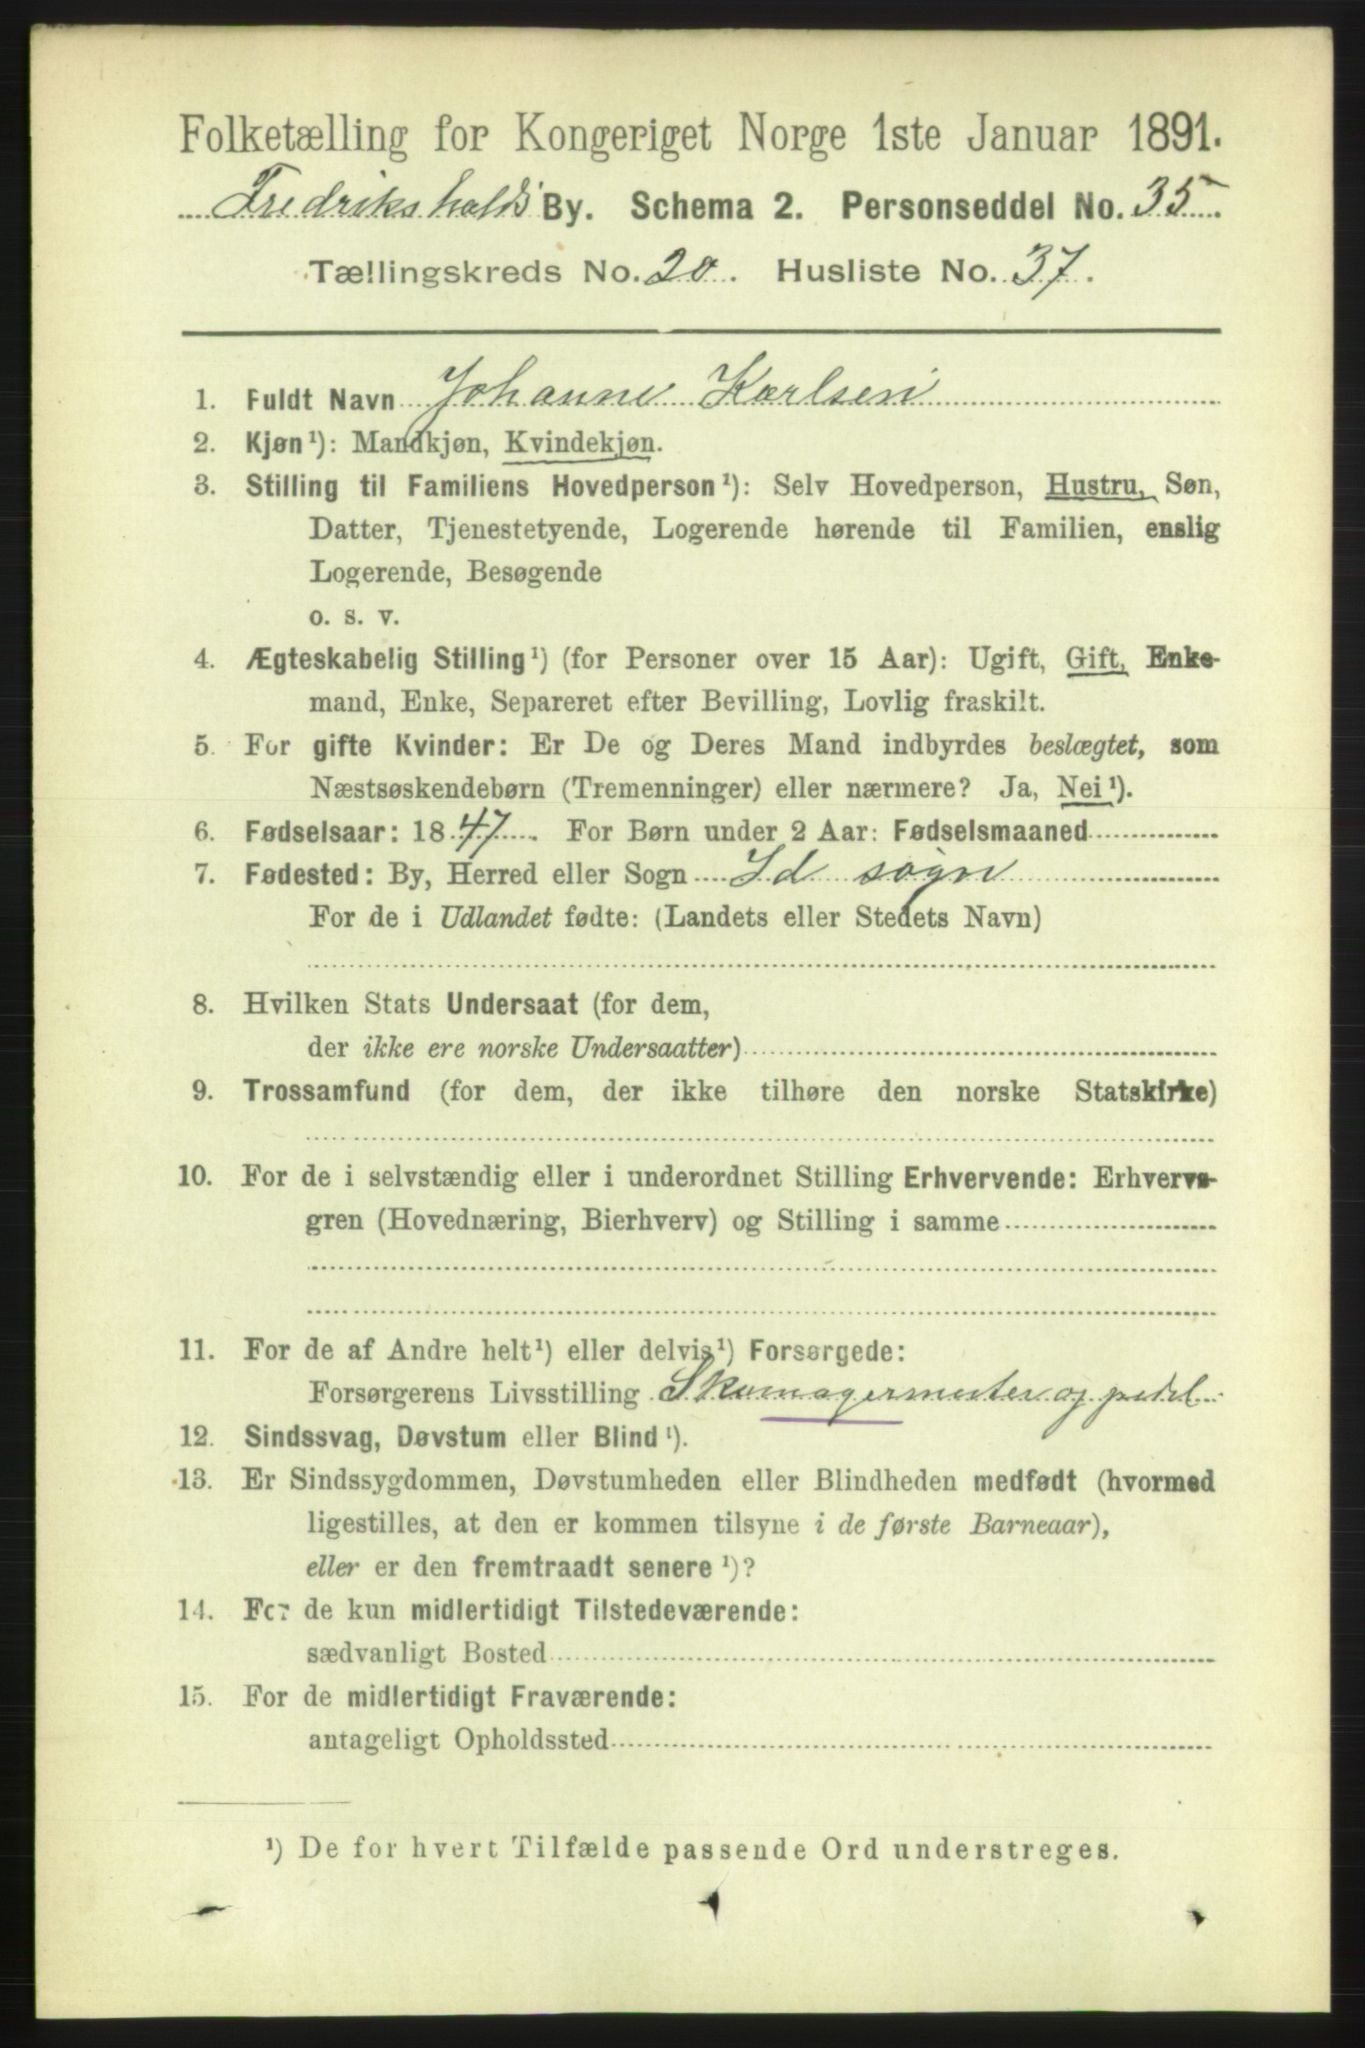 Folketælling for Kongeriget Norge 1ste Januar 1891.
Fredrikshalds By. Schema 2. Personseddel No. 35
Tællingskreds No. 20. Husliste No. 37.
1. Fuldt Navn Johanne Karlsen
2. Kjøn¹): Mandkjøn, Kvindekjøn.
3. Stilling til Familiens Hovedperson¹): Selv Hovedperson, Hustru, Søn,
Datter, Tjenestetyende, Logerende hørende til Familien, enslig
Logerende, Besøgende
o. s. v.
4. Ægteskabelig Stilling¹) (for Personer over 15 Aar): Ugift, Gift, Enke-
mand, Enke, Separeret efter Bevilling, Lovlig fraskilt.
5. For gifte Kvinder: Er De og Deres Mand indbyrdes beslægtet, som
Næstsøskendebørn (Tremenninger) eller nærmere? Ja, Nei¹).
6. Fødselsaar: 1847. For Børn under 2 Aar: Fødselsmaaned
7. Fødested: By, Herred eller Sogn Id sogn
For de i Udlandet fødte: (Landets eller Stedets Navn)
8. Hvilken Stats Undersaat (for dem,
der ikke ere norske Undersaatter)
9. Trossamfund (for dem, der ikke tilhøre den norske Statskirke)
10. For de i selvstændig eller i underordnet Stilling Erhvervende: Erhvervs-
gren (Hovednæring, Bierhverv) og Stilling i samme
11. For de af Andre helt¹) eller delvis¹) Forsørgede:
Forsørgerens Livsstilling Skomagermester og pedel
12. Sindssvag, Døvstum eller Blind¹).
13. Er Sindssygdommen, Døvstumheden eller Blindheden medfødt (hvormed
ligestilles, at den er kommen tilsyne i de første Barneaar),
eller er den fremtraadt senere¹)?
14. For de kun midlertidigt Tilstedeværende:
sædvanligt Bosted
15. For de midlertidigt Fraværende:
antageligt Opholdssted
¹) De for hvert Tilfælde passende Ord understreges.